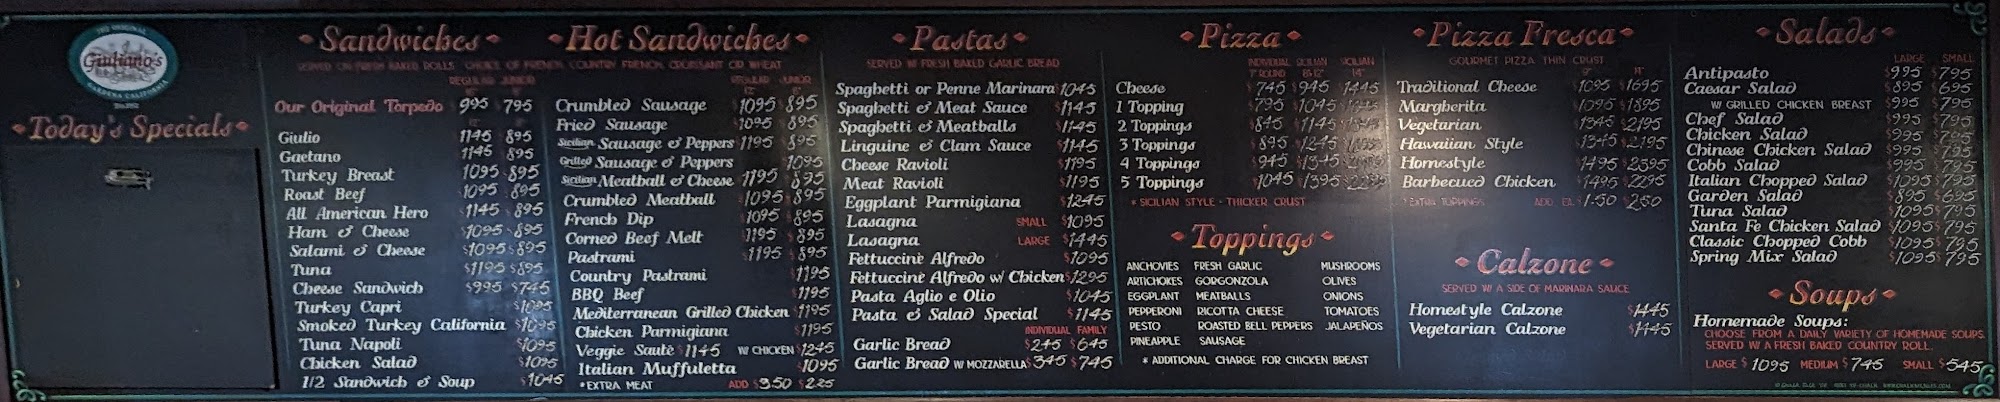 THE ORIGINAL
Giuliano's
GARDENA CALIFORNIA
Today's Specials
Sandwiches
Hot Sandwiches
SERVED ON FRESH BAKED ROLLS CHOICE OF FRENCH, COUNTRY FRENCH, CROISSANT OR WHEAT
REGULAR JUNIOR
Our Original Torpedo $995 $795
Giulio 1145 895
Gaetano 1145 895
Turkey Breast 1095 895
Roast Beef 1095 895
All American Hero $1145 $895
Ham & Cheese $1095 $895
Salami & Cheese $1095 $895
Tuna $1195 $895
Cheese Sandwich $995 $745
Turkey Capri $1095
Smoked Turkey California $1095
Tuna Napoli $1095
Chicken Salad $1095
1/2 Sandwich & Soup $1045
REGULAR JUNIOR
Crumbled Sausage $1095 $895
Fried Sausage $1095 $895
Sicilian Sausage & Peppers $1195 $895
Grilled Sausage & Peppers $1095
Sicilian Meatball & Cheese $1195 $895
Crumbled Meatball $1095 $895
French Dip $1095 $895
Corned Beef Melt $1195 $895
Pastrami $1195 $895
Country Pastrami $1195
BBQ Beef $1195
Mediterranean Grilled Chicken $1195
Chicken Parmigiana $1195
Veggie Saute $1145 W/ CHICKEN $1245
Italian Muffuletta $1095
*EXTRA MEAT ADD $3.50 $2.25
Pastas
SERVED W/ FRESH BAKED GARLIC BREAD
Spaghetti or Penne Marinara $1045
Spaghetti & Meat Sauce $1145
Spaghetti & Meatballs $1145
Linguine & Clam Sauce $1145
Cheese Ravioli $1195
Meat Ravioli $1195
Eggplant Parmigiana $1245
Lasagna SMALL $1095
Lasagna LARGE $1445
Fettuccine Alfredo $1095
Fettuccine Alfredo w/ Chicken $1295
Pasta Aglio e Olio $1045
Pasta & Salad Special $1145
INDIVIDUAL FAMILY
Garlic Bread $245 $645
Garlic Bread W/ MOZZARELLA $345 $745
Pizza
INDIVIDUAL SICILIAN SICILIAN
7" ROUND 8X12" 14"
Cheese $745 $945 $1445
1 Topping $795 $1045
2 Toppings $845 $1145
3 Toppings $895 $1245
4 Toppings $945 $1345
5 Toppings $1045 $1395 $2295
* SICILIAN STYLE - THICKER CRUST
Toppings
ANCHOVIES FRESH GARLIC MUSHROOMS
ARTICHOKES GORGONZOLA OLIVES
EGGPLANT MEATBALLS ONIONS
PEPPERONI RICOTTA CHEESE TOMATOES
PESTO ROASTED BELL PEPPERS JALAPEÑOS
PINEAPPLE SAUSAGE
* ADDITIONAL CHARGE FOR CHICKEN BREAST
Pizza Fresca
GOURMET PIZZA THIN CRUST
Traditional Cheese $1095 $1695
Margherita $1095 $1895
Vegetarian $1345 $2195
Hawaiian Style $1345 $2195
Homestyle $1495 $2395
Barbecued Chicken $1495 $2295
*EXTRA TOPPINGS ADD EA. $1.50 $2.50
Calzone
SERVED W/ A SIDE OF MARINARA SAUCE
Homestyle Calzone $1145
Vegetarian Calzone $1145
Salads
LARGE SMALL
Antipasto $995 $795
Caesar Salad $895 $695
W/ GRILLED CHICKEN BREAST $995 $795
Chef Salad $995 $795
Chicken Salad $995 $795
Chinese Chicken Salad $995 $795
Cobb Salad $995 $795
Italian Chopped Salad $1095 $795
Garden Salad $895 $695
Tuna Salad $1095 $795
Santa Fe Chicken Salad $1095 $795
Classic Chopped Cobb $1095 $795
Spring Mix Salad $1095 $795
Soups
Homemade Soups:
CHOOSE FROM A DAILY VARIETY OF HOMEMADE SOUPS.
SERVED W/ A FRESH BAKED COUNTRY ROLL.
LARGE $1095 MEDIUM $745 SMALL $545